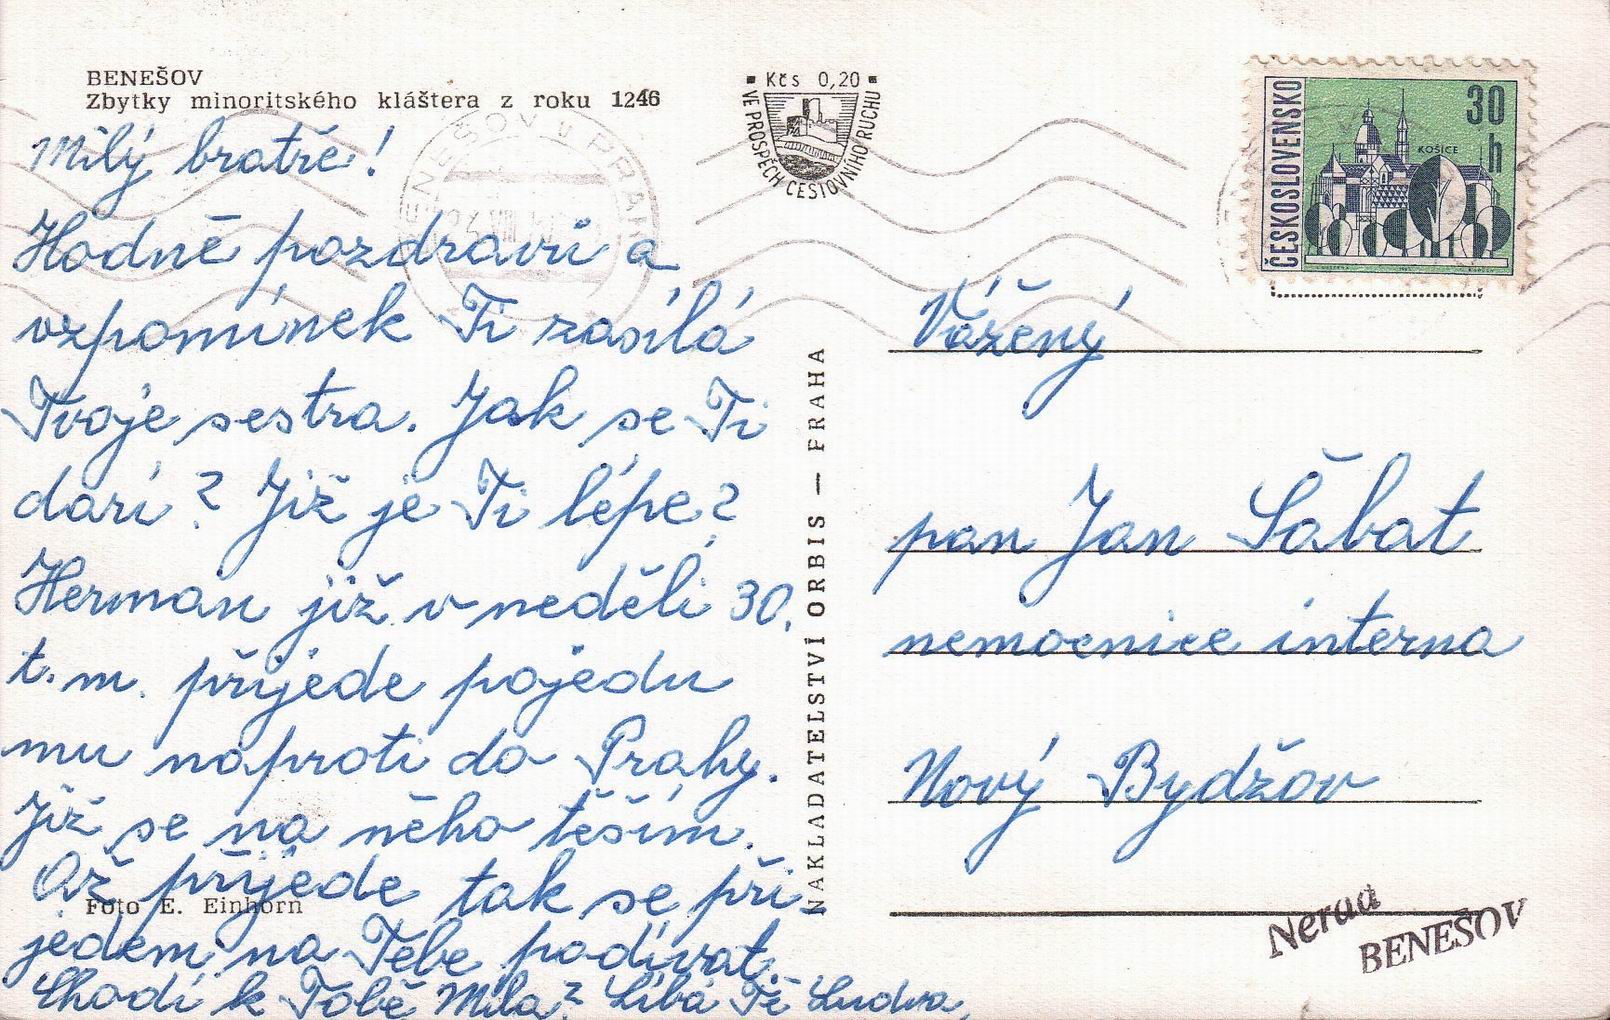 BENEŠOV
Zbytky minoritského kláštera z roku 1246
Kčs 0,20
VE PROSPĚCH CESTOVNÍHO RUCHU
ČESKOSLOVENSKO
30
h
KOŠICE
BENEŠOV u PRAHY
Milý bratře!
Hodně pozdravů a
vzpomínek Ti zasílá
Tvoje sestra. Jak se Ti
daří? Již je Ti lépe?
Herman již v neděli 30.
t.m. přijede pojedu
mu naproti do Prahy.
Již se na něho těším.
Až přijede tak se při-
jedem na Tebe podívat.
Chodí k Tobě Mila? Líbá Tě Ludva,
Foto E. Einhorn
NAKLADATELSTVÍ ORBIS — PRAHA
Vážený
pan Jan Šábat
nemocnice interna
Nový Bydžov
BENEŠOV